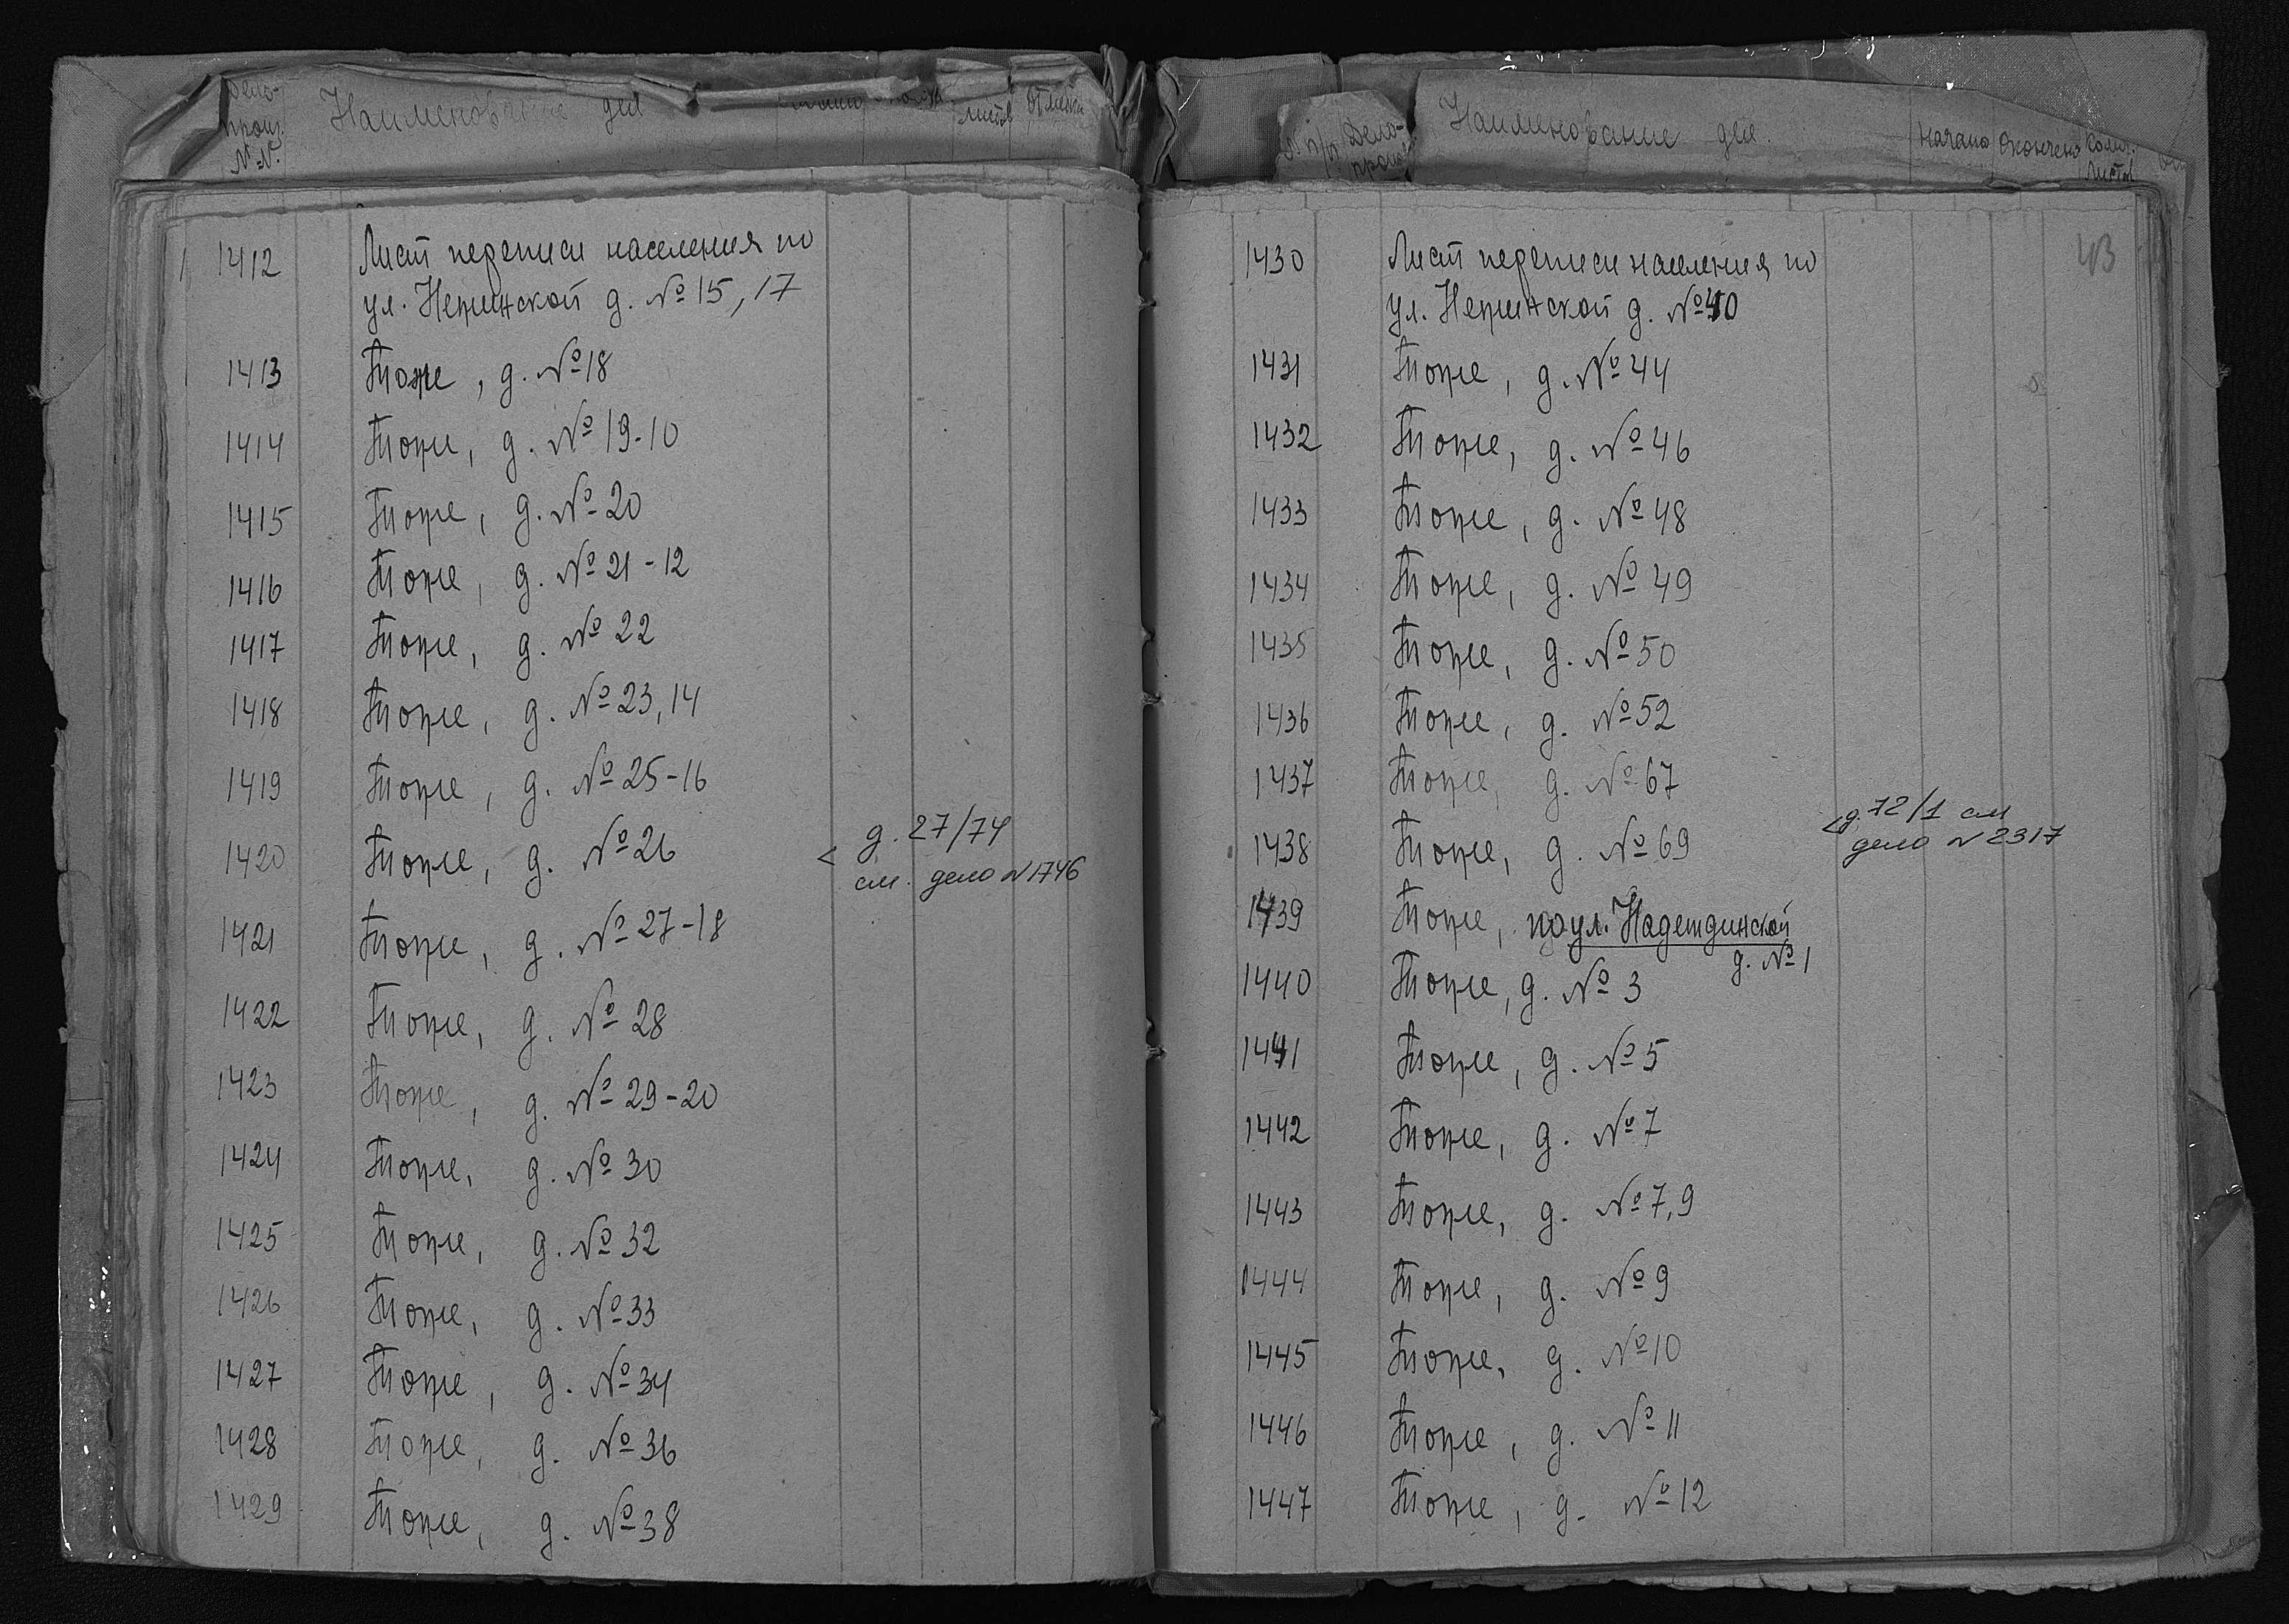 Дело-
произ.
N.N.
Наименование дел
листов
Отметка
1412 Лист переписи населения по
ул. Нежинской д. № 15, 17
1413 Тоже, д. № 18
1414 Тоже, д. № 19-10
1415 Тоже, д. № 20
1416 Тоже, д. № 21-12
1417 Тоже, д. № 22
1418 Тоже, д. № 23,14
1419 Тоже, д. № 25-16
1420 Тоже, д. № 26 < д. 27/74
см. дело N 1746
1421 Тоже, д. № 27-18
1422 Тоже, д. № 28
1423 Тоже, д. № 29-20
1424 Тоже, д. № 30
1425 Тоже, д. № 32
1426 Тоже, д. № 33
1427 Тоже, д. № 34
1428 Тоже, д. № 36
1429 Тоже, д. № 38
№ п/п Дело-
произв.
Наименование дел.
Начало Окончено Колич.
Листов
43
1430 Лист переписи населения по
ул. Нежинской д. № 40
1431 Тоже, д. № 44
1432 Тоже, д. № 46
1433 Тоже, д. № 48
1434 Тоже, д. № 49
1435 Тоже, д. № 50
1436 Тоже, д. № 52
1437 Тоже, д. № 67
1438 Тоже, д. № 69 < д. 72/1 см
дело N 2317
1439 Тоже, по ул. Надеждинской
д. № 1
1440 Тоже, д. № 3
1441 Тоже, д. № 5
1442 Тоже, д. № 7
1443 Тоже, д. № 7,9
1444 Тоже, д. № 9
1445 Тоже, д. № 10
1446 Тоже, д. № 11
1447 Тоже, д. № 12